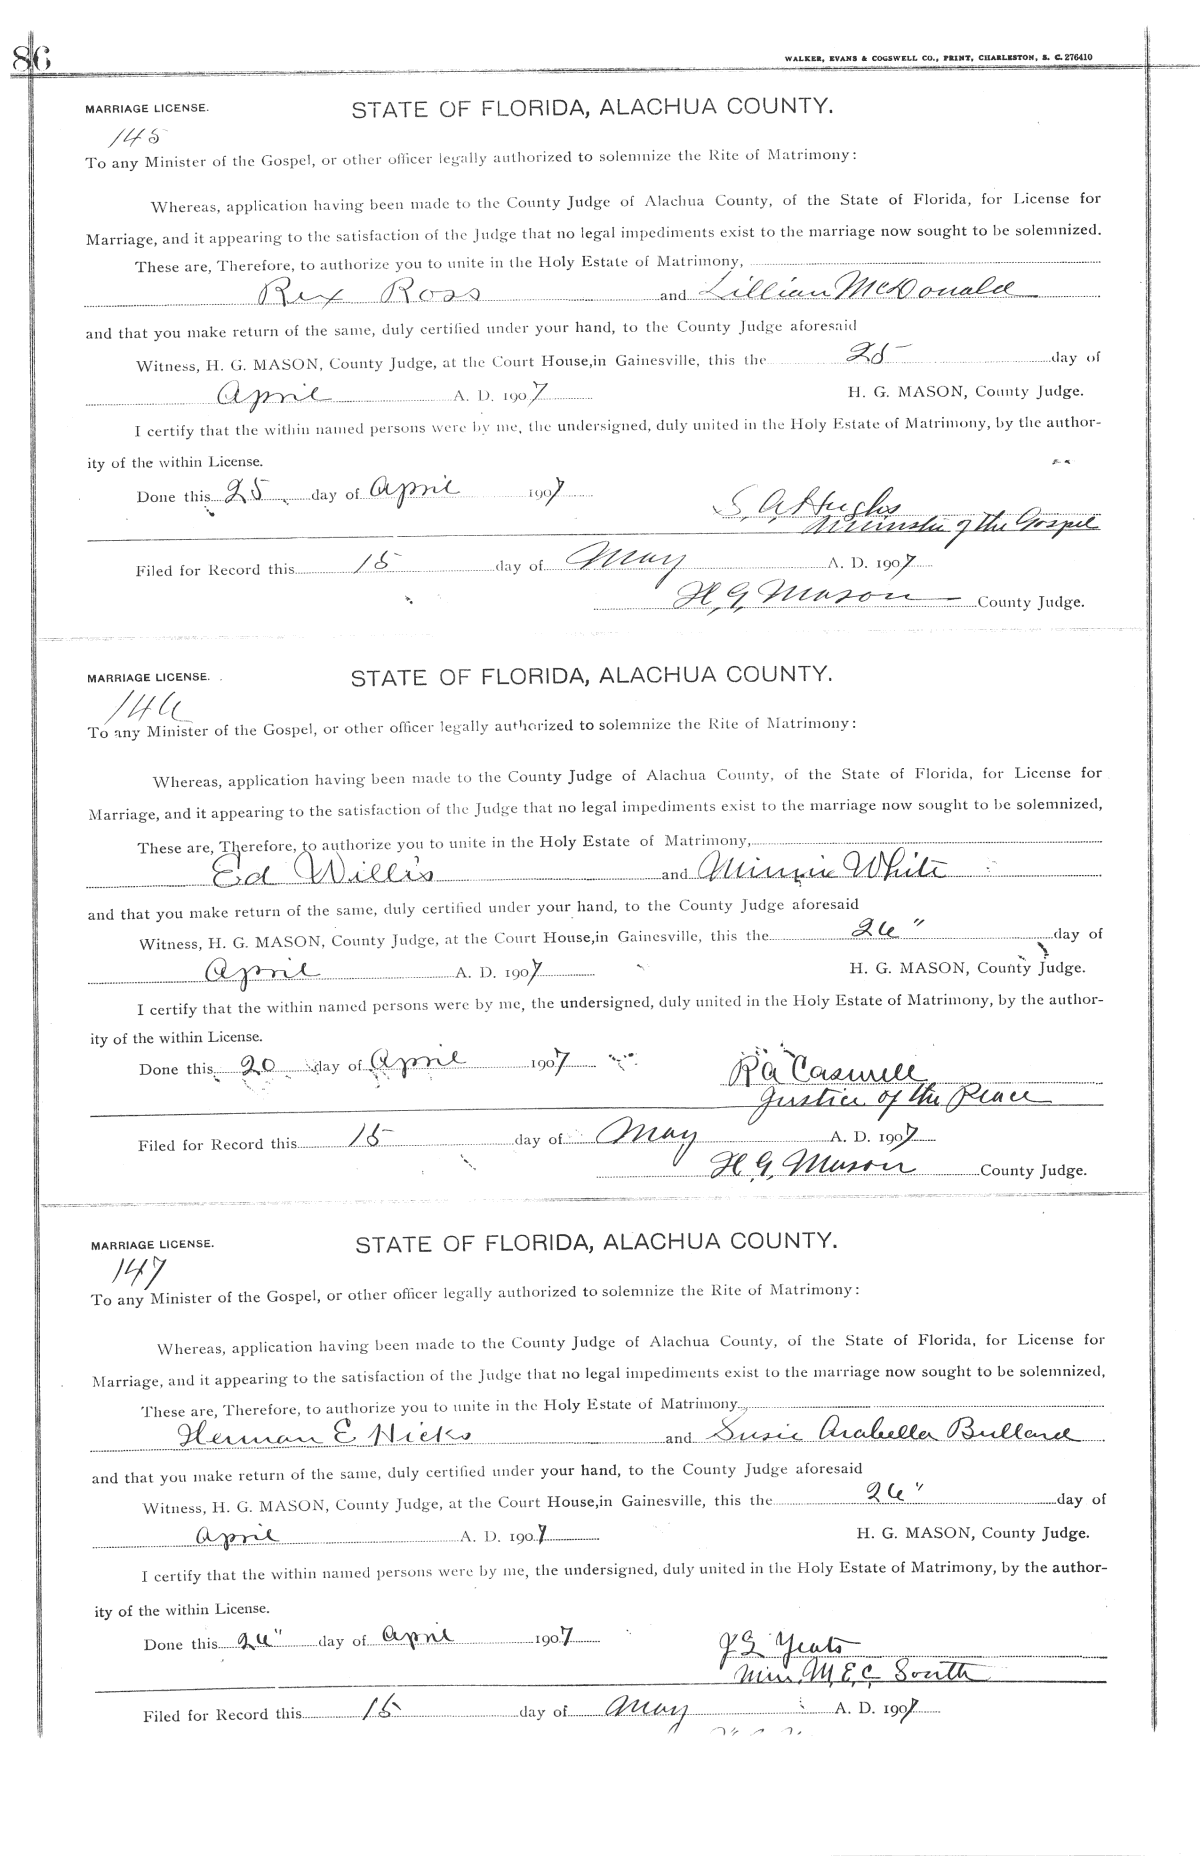 86
WALKER, EVANS & COGSWELL CO., PRINT, CHARLESTON, S. C. 276410
MARRIAGE LICENSE. STATE OF FLORIDA, ALACHUA COUNTY.
145
To any Minister of the Gospel, or other officer legally authorized to solemnize the Rite of Matrimony:
Whereas, application having been made to the County Judge of Alachua County, of the State of Florida, for License for
Marriage, and it appearing to the satisfaction of the Judge that no legal impediments exist to the marriage now sought to be solemnized.
These are, Therefore, to authorize you to unite in the Holy Estate of Matrimony,
Rex Ross and Lillian McDonald
and that you make return of the same, duly certified under your hand, to the County Judge aforesaid
Witness, H. G. MASON, County Judge, at the Court House, in Gainesville, this the 25 day of
April A. D. 1907 H. G. MASON, County Judge.
I certify that the within named persons were by me, the undersigned, duly united in the Holy Estate of Matrimony, by the author-
ity of the within License.
Done this 25 day of April 1907
S. A. Hughs
Minister of the Gospel
Filed for Record this 15 day of May A. D. 1907
H. G. Mason County Judge.
MARRIAGE LICENSE. STATE OF FLORIDA, ALACHUA COUNTY.
146
To any Minister of the Gospel, or other officer legally authorized to solemnize the Rite of Matrimony:
Whereas, application having been made to the County Judge of Alachua County, of the State of Florida, for License for
Marriage, and it appearing to the satisfaction of the Judge that no legal impediments exist to the marriage now sought to be solemnized,
These are, Therefore, to authorize you to unite in the Holy Estate of Matrimony,
Ed Willis and Minnie White
and that you make return of the same, duly certified under your hand, to the County Judge aforesaid
Witness, H. G. MASON, County Judge, at the Court House, in Gainesville, this the 26" day of
April A. D. 1907 H. G. MASON, County Judge.
I certify that the within named persons were by me, the undersigned, duly united in the Holy Estate of Matrimony, by the author-
ity of the within License.
Done this 20 day of April 1907
R A Caswell
Justice of the Peace
Filed for Record this 15 day of May A. D. 1907
H. G. Mason County Judge.
MARRIAGE LICENSE. STATE OF FLORIDA, ALACHUA COUNTY.
147
To any Minister of the Gospel, or other officer legally authorized to solemnize the Rite of Matrimony:
Whereas, application having been made to the County Judge of Alachua County, of the State of Florida, for License for
Marriage, and it appearing to the satisfaction of the Judge that no legal impediments exist to the marriage now sought to be solemnized,
These are, Therefore, to authorize you to unite in the Holy Estate of Matrimony
Herman E Hicks and Susie Arabella Bullard
and that you make return of the same, duly certified under your hand, to the County Judge aforesaid
Witness, H. G. MASON, County Judge, at the Court House, in Gainesville, this the 26" day of
April A. D. 1907 H. G. MASON, County Judge.
I certify that the within named persons were by me, the undersigned, duly united in the Holy Estate of Matrimony, by the author-
ity of the within License.
Done this 26" day of April 1907
J G Yeats
Min. M. E. C. South
Filed for Record this 15 day of May A. D. 1907